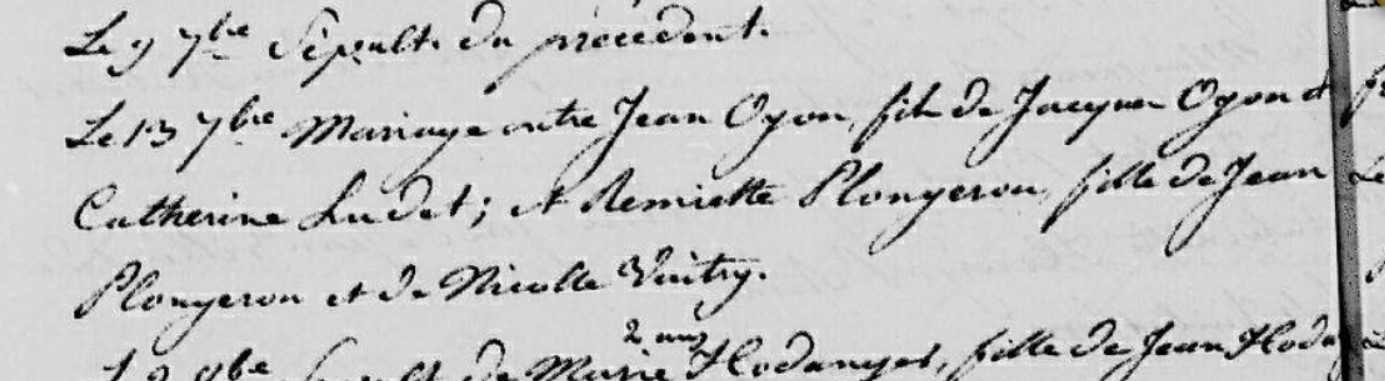 Le 9 7bre Sépult. du précédent.
Le 13 7bre Mariage entre Jean Oyon, fils de Jacques Oyon &
Catherine Ludet; et Remiette Plongeron, fille de Jean
Plongeron et de Nicolle Vuitry.
2 ans
Le 2 9bre Sepult. de Marie Hodanger, fille de Jean Hoda